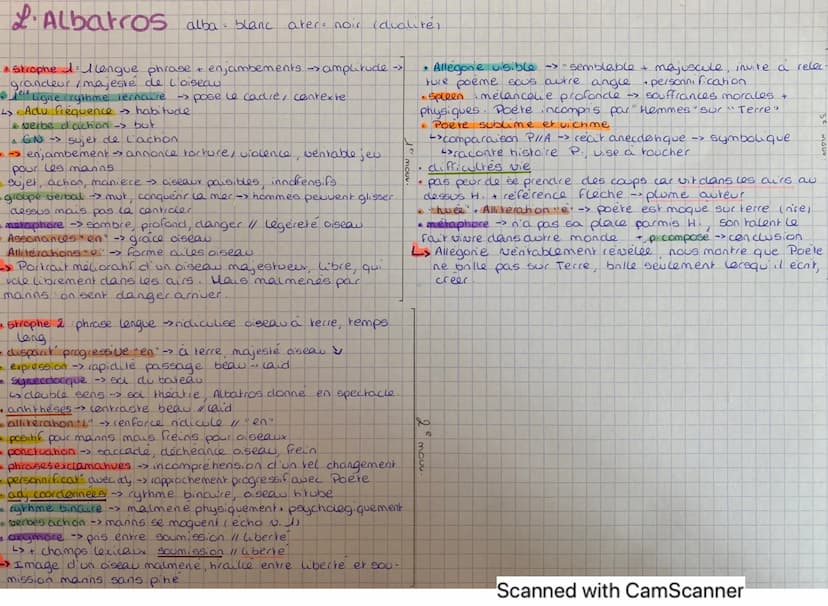 L'Albatros alba = blanc ater = noir (dualité)
• strophe 1 : 1 longue phrase + enjambements → amplitude →
grandeur / majesté de l'oiseau
• 1ère ligne rythme ternaire → pose le cadre, contexte
↳ Adv fréquence → habitude
• verbe d'action → but
• GN → sujet de l'action
• → enjambement → annonce torture, violence, véritable jeu
pour les marins
• sujet, action, manière → oiseaux paisibles, inoffensifs
• groupe verbal → mvt, conquérir la mer → hommes peuvent glisser
dessus mais pas la contrôler
• métaphore → sombre, profond, danger // légèreté oiseau
• Assonances "en" → grâce oiseau
• Allitérations → forme ailes oiseau
↳ Portrait mélioratif d'un oiseau majestueux, libre, qui
vole librement dans les airs. Mais malmenés par
marins on sent danger arriver.
1er mouv
• strophe 2 phrase longue → ridiculise oiseau à terre, temps
long
• disparit° progressive "en" → à terre, majesté oiseau ↘
• expression → rapidité passage beau → laid
• synecdocque → sol du bateau
↳ double sens → sol théâtre, Albatros donné en spectacle
• antithèses → contraste beau // laid
• allitération "l" → renforce ridicule // "en"
• positif pour marins mais freins pour oiseaux
• ponctuation → saccadé, déchéance oiseau, frein
• phrases exclamatives → incompréhension d'un tel changement
• personnificat° avec adj → rapprochement progressif avec Poète
• adj coordonnées → rythme binaire, oiseau titube
• rythme binaire → malmené physiquement + psychologiquement
• verbes action → marins se moquent (écho v. 1)
• oxymore → pris entre soumission // liberté
↳ + champs lexicaux soumission // liberté
↳ Image d'un oiseau malmené, tiraillé entre liberté et sou-
mission marins sans pitié
2e mouv
• Allégorie visible → "semblable + majuscule, invite à relec-
ture poème sous autre angle + personnification
• spleen : mélancolie profonde → souffrances morales +
physiques. Poète incompris par "Hommes" sur "Terre"
• Poète sublime et victime
↳ comparaison P//A → récit anecdotique → symbolique
↳ raconte histoire P, vise à toucher
• difficultés vie
• pas peur de se prendre des coups car vit dans les airs au
dessus H. + référence flèche → plume auteur
• "huée" + Allitération "é" → poète est moqué sur terre (rire)
• métaphore → n'a pas sa place parmis H, son talent le
fait vivre dans autre monde + p composé → conclusion
↳ Allégorie véritablement révélée, nous montre que Poète
ne brille pas sur Terre, brille seulement lorsqu'il écrit,
créer.
3e mouv
Scanned with CamScanner